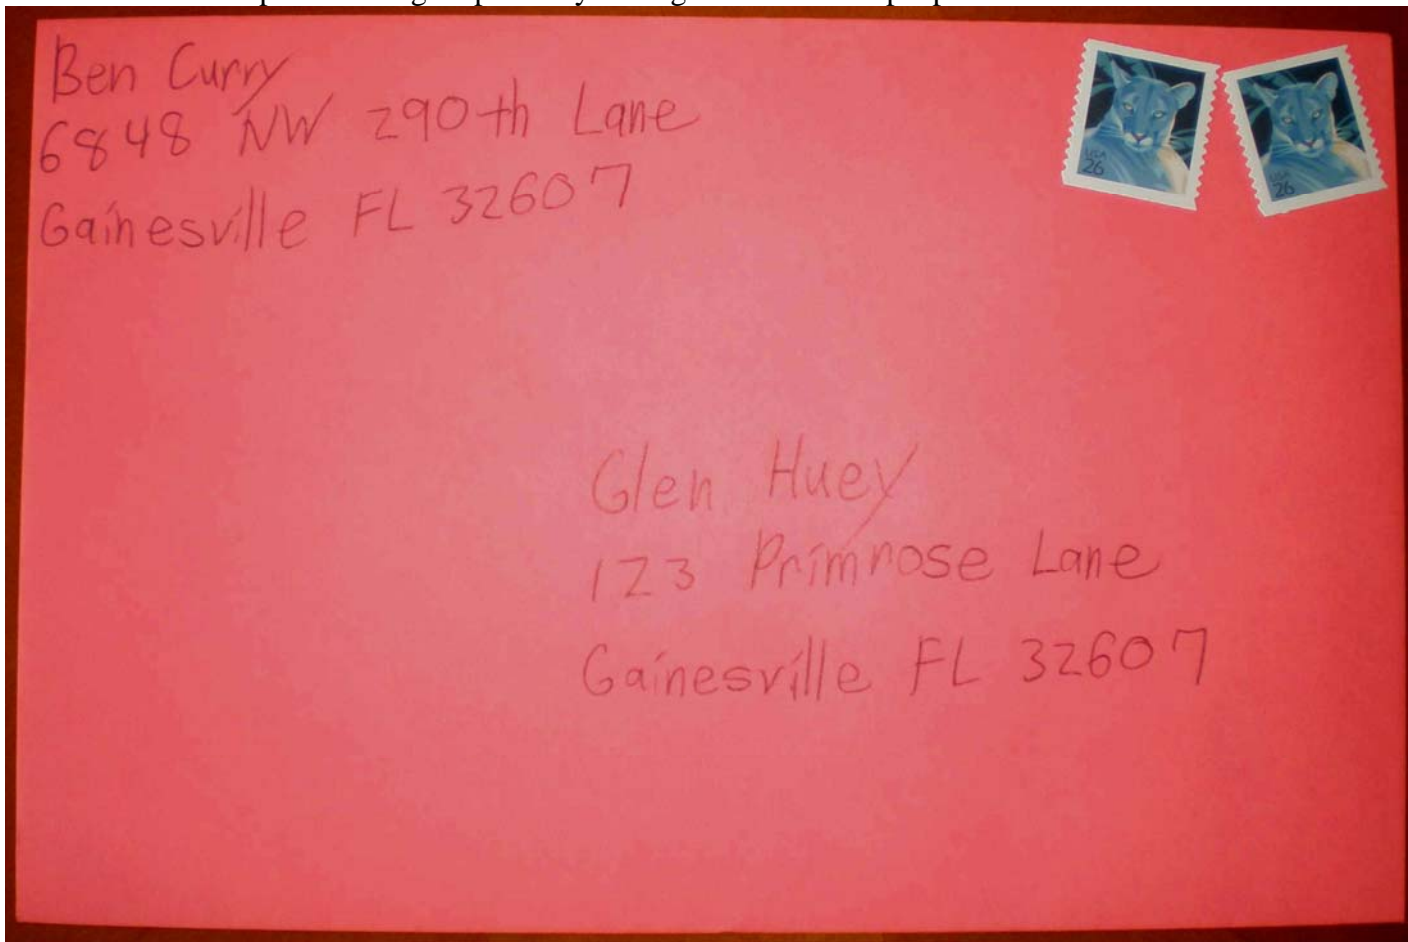 Ben Curry
6848 NW 290th Lane
Gainesville FL 32607
USA
26
USA
26
Glen Huey
123 Primrose Lane
Gainesville FL 32607